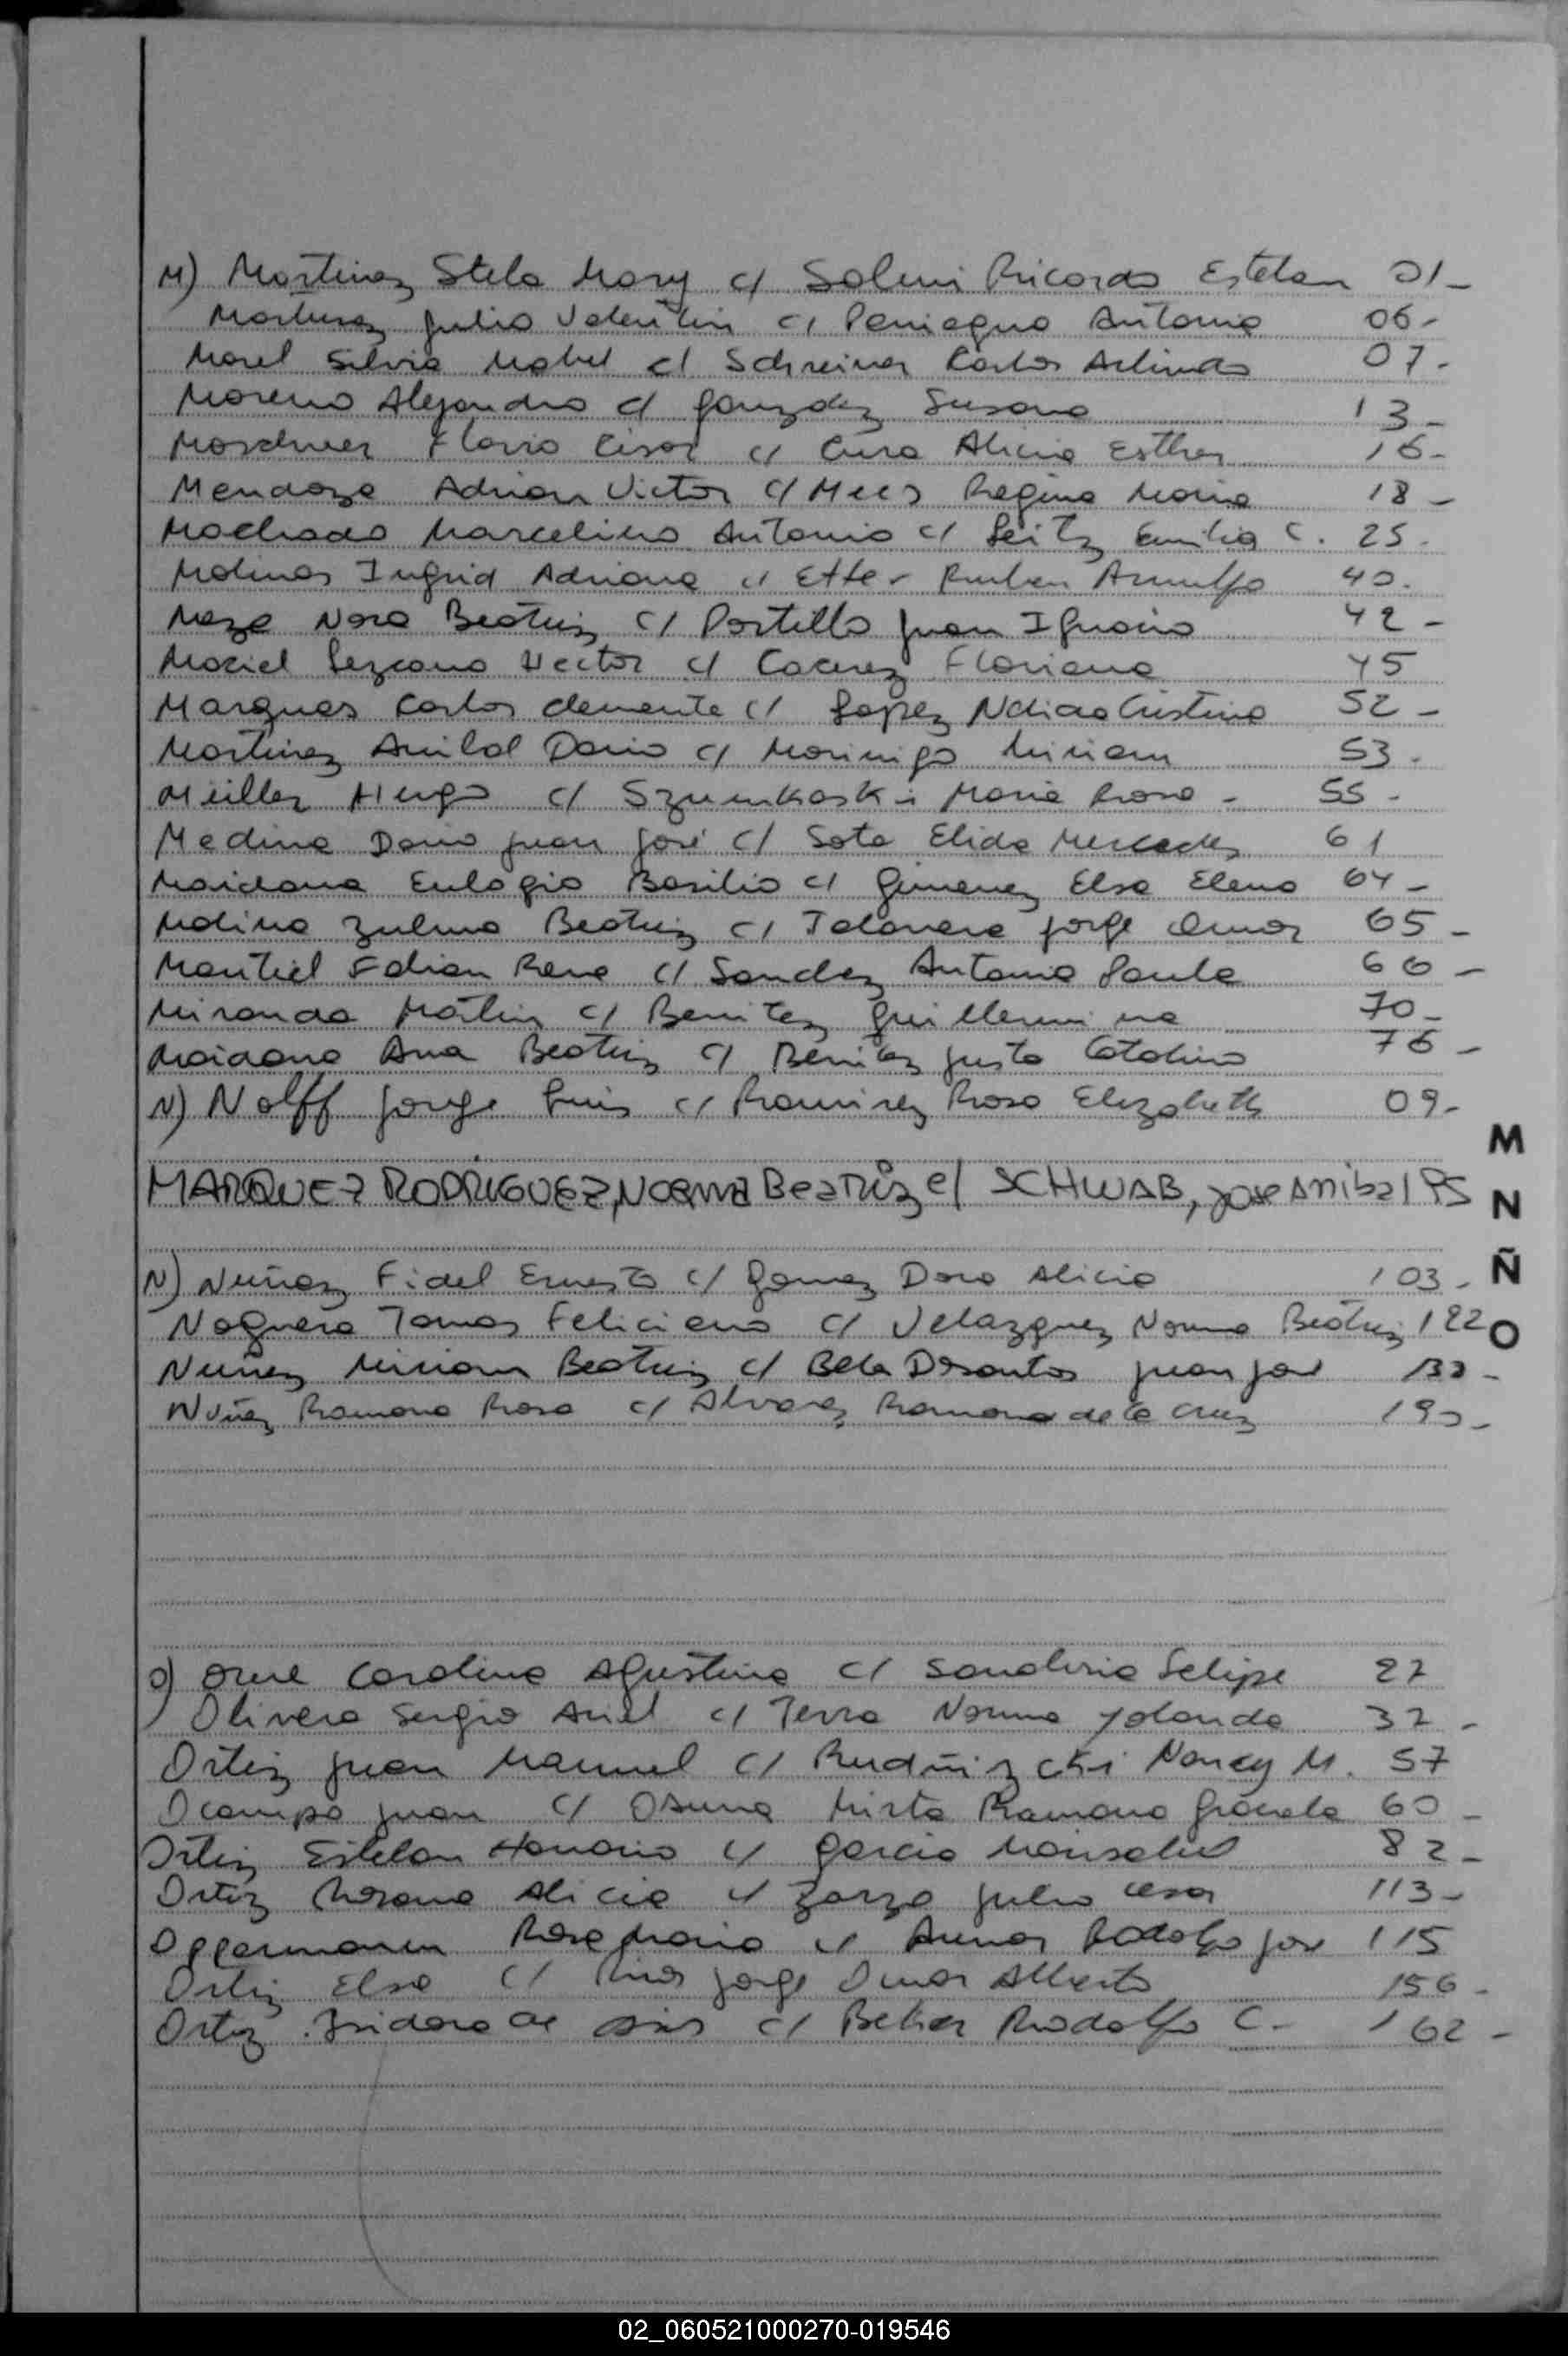 M) Martinez Stela Mary c/ Salum Ricardo Esteban 01-
Martinez Julio Valentin c/ Paniagua Antonia 06-
Morel Silvia Mabel c/ Schreiner Carlos Arlindo 07-
Moreno Alejandro c/ Gonzalez Susana 13-
Moschner Flavio Cesar c/ Cura Alicia Esther 16-
Mendoza Adrian Victor c/ Mees Regina Maria 18-
Machado Marcelino Antonio c/ Seitz Emilia C. 25.
Molinas Ingrid Adriana c/ Etter Ruben Arnulfo 40.
Meza Nora Beatriz c/ Portillo Juan Ignacio 42-
Maciel Lezcano Hector c/ Cacerez Floriana 45
Marques Carlos Clemente c/ Lopez Nelida Cristina 52-
Martinez Anibal Dario c/ Morinigo Miriam 53.
Müller Hugo c/ Szumkoski Maria Rosa - 55-
Medina Dario Juan José c/ Soto Elida Mercedes 61
Maidana Eulogio Basilio c/ Gimenez Elsa Elena 64-
Molina Zulma Beatriz c/ Talavera Jorge Omar 65-
Montiel Fabian Rene c/ Sanchez Antonia Paula 66-
Miranda Martin c/ Benitez Guillermina 70-
Maidana Ana Beatriz c/ Benitez Justo Catalino 76-
N) Nolff Jorge Luis c/ Ramirez Rosa Elizabeth 09-
M
MARQUEZ RODRIGUEZ, Norma Beatriz c/ SCHWAB, Jose Anibal 95
N
Ñ
N) Nuñez Fidel Ernesto c/ Gomez Dora Alicia 103-
Noguera Tomas Feliciano c/ Velazquez Norma Beatriz 122
O
Nuñez Miriam Beatriz c/ Bela Dosantos Juan José 130-
Nuñez Ramona Rosa c/ Alvarez Ramona de la Cruz 190-
O) Orue Carolina Agustina c/ Sanabria Felipe 27
Olivera Sergio Ariel c/ Terra Norma Yolanda 32-
Ortiz Juan Manuel c/ Rudñizcki Nancy M. 57
Ocampo Juan c/ Osuna Mirta Ramona Graciela 60-
Ortiz Esteban Honorio c/ Garcia Marisabel 82-
Ortiz Rosana Alicia c/ Zarza Julio Cesar 113-
Oppermann Rosa Maria c/ Rodolfo José 115
Ortiz Elsa c/ Rios Jorge Omar Alberto 156-
Ortiz Isidora de Asis c/ Rodolfo C. - 162-
02_060521000270-019546